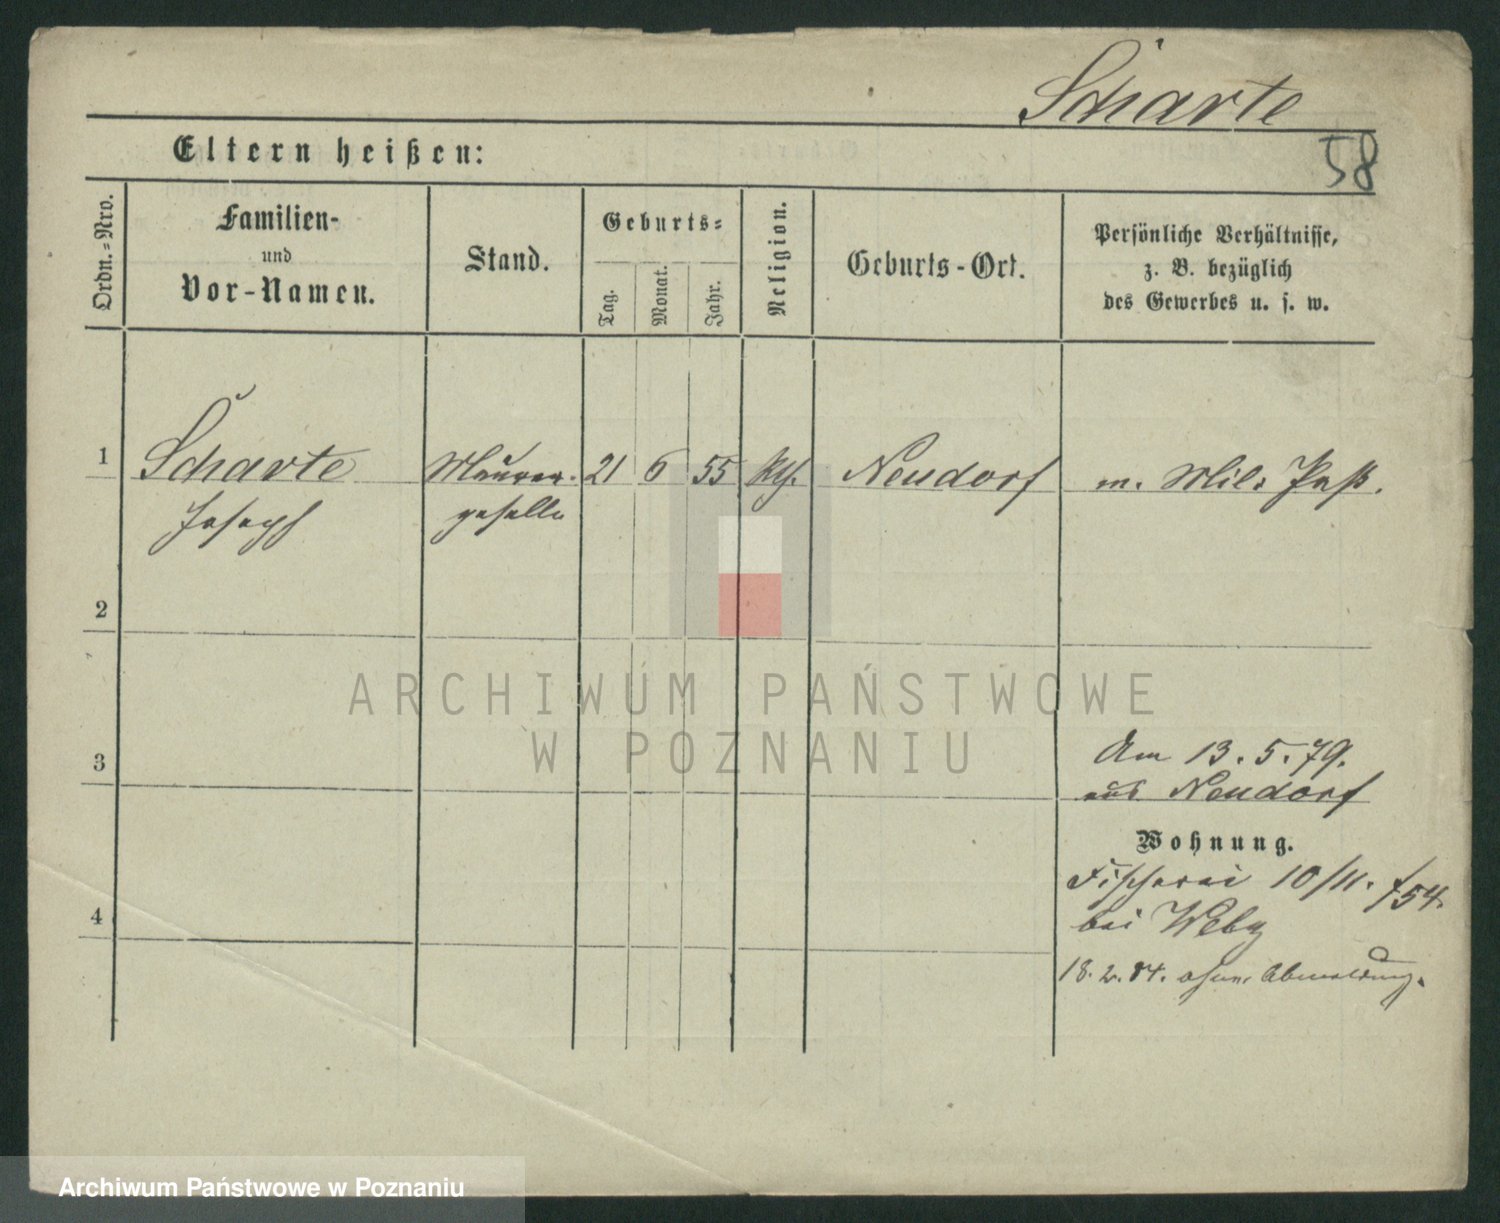 Scharte
58
Eltern heißen:
Ordn.-Nro.
Familien-
und
Vor-Namen.
Stand.
Geburts-
Tag.
Monat.
Jahr.
Religion.
Geburts-Ort.
Persönliche Verhältnisse,
z. B. bezüglich
des Gewerbes u. s. w.
1 Scharte Maurer- 21 6 55 kth. Neudorf m. Mil. Paß.
Joseph geselle
2
3
Am 13. 5. 79.
aus Neudorf
Wohnung.
Fischerei 10/11. f54.
4
bei
18. 2. 84. ohne Abmeldung.
ARCHIWUM PAŃSTWOWE
W POZNANIU
Archiwum Państwowe w Poznaniu